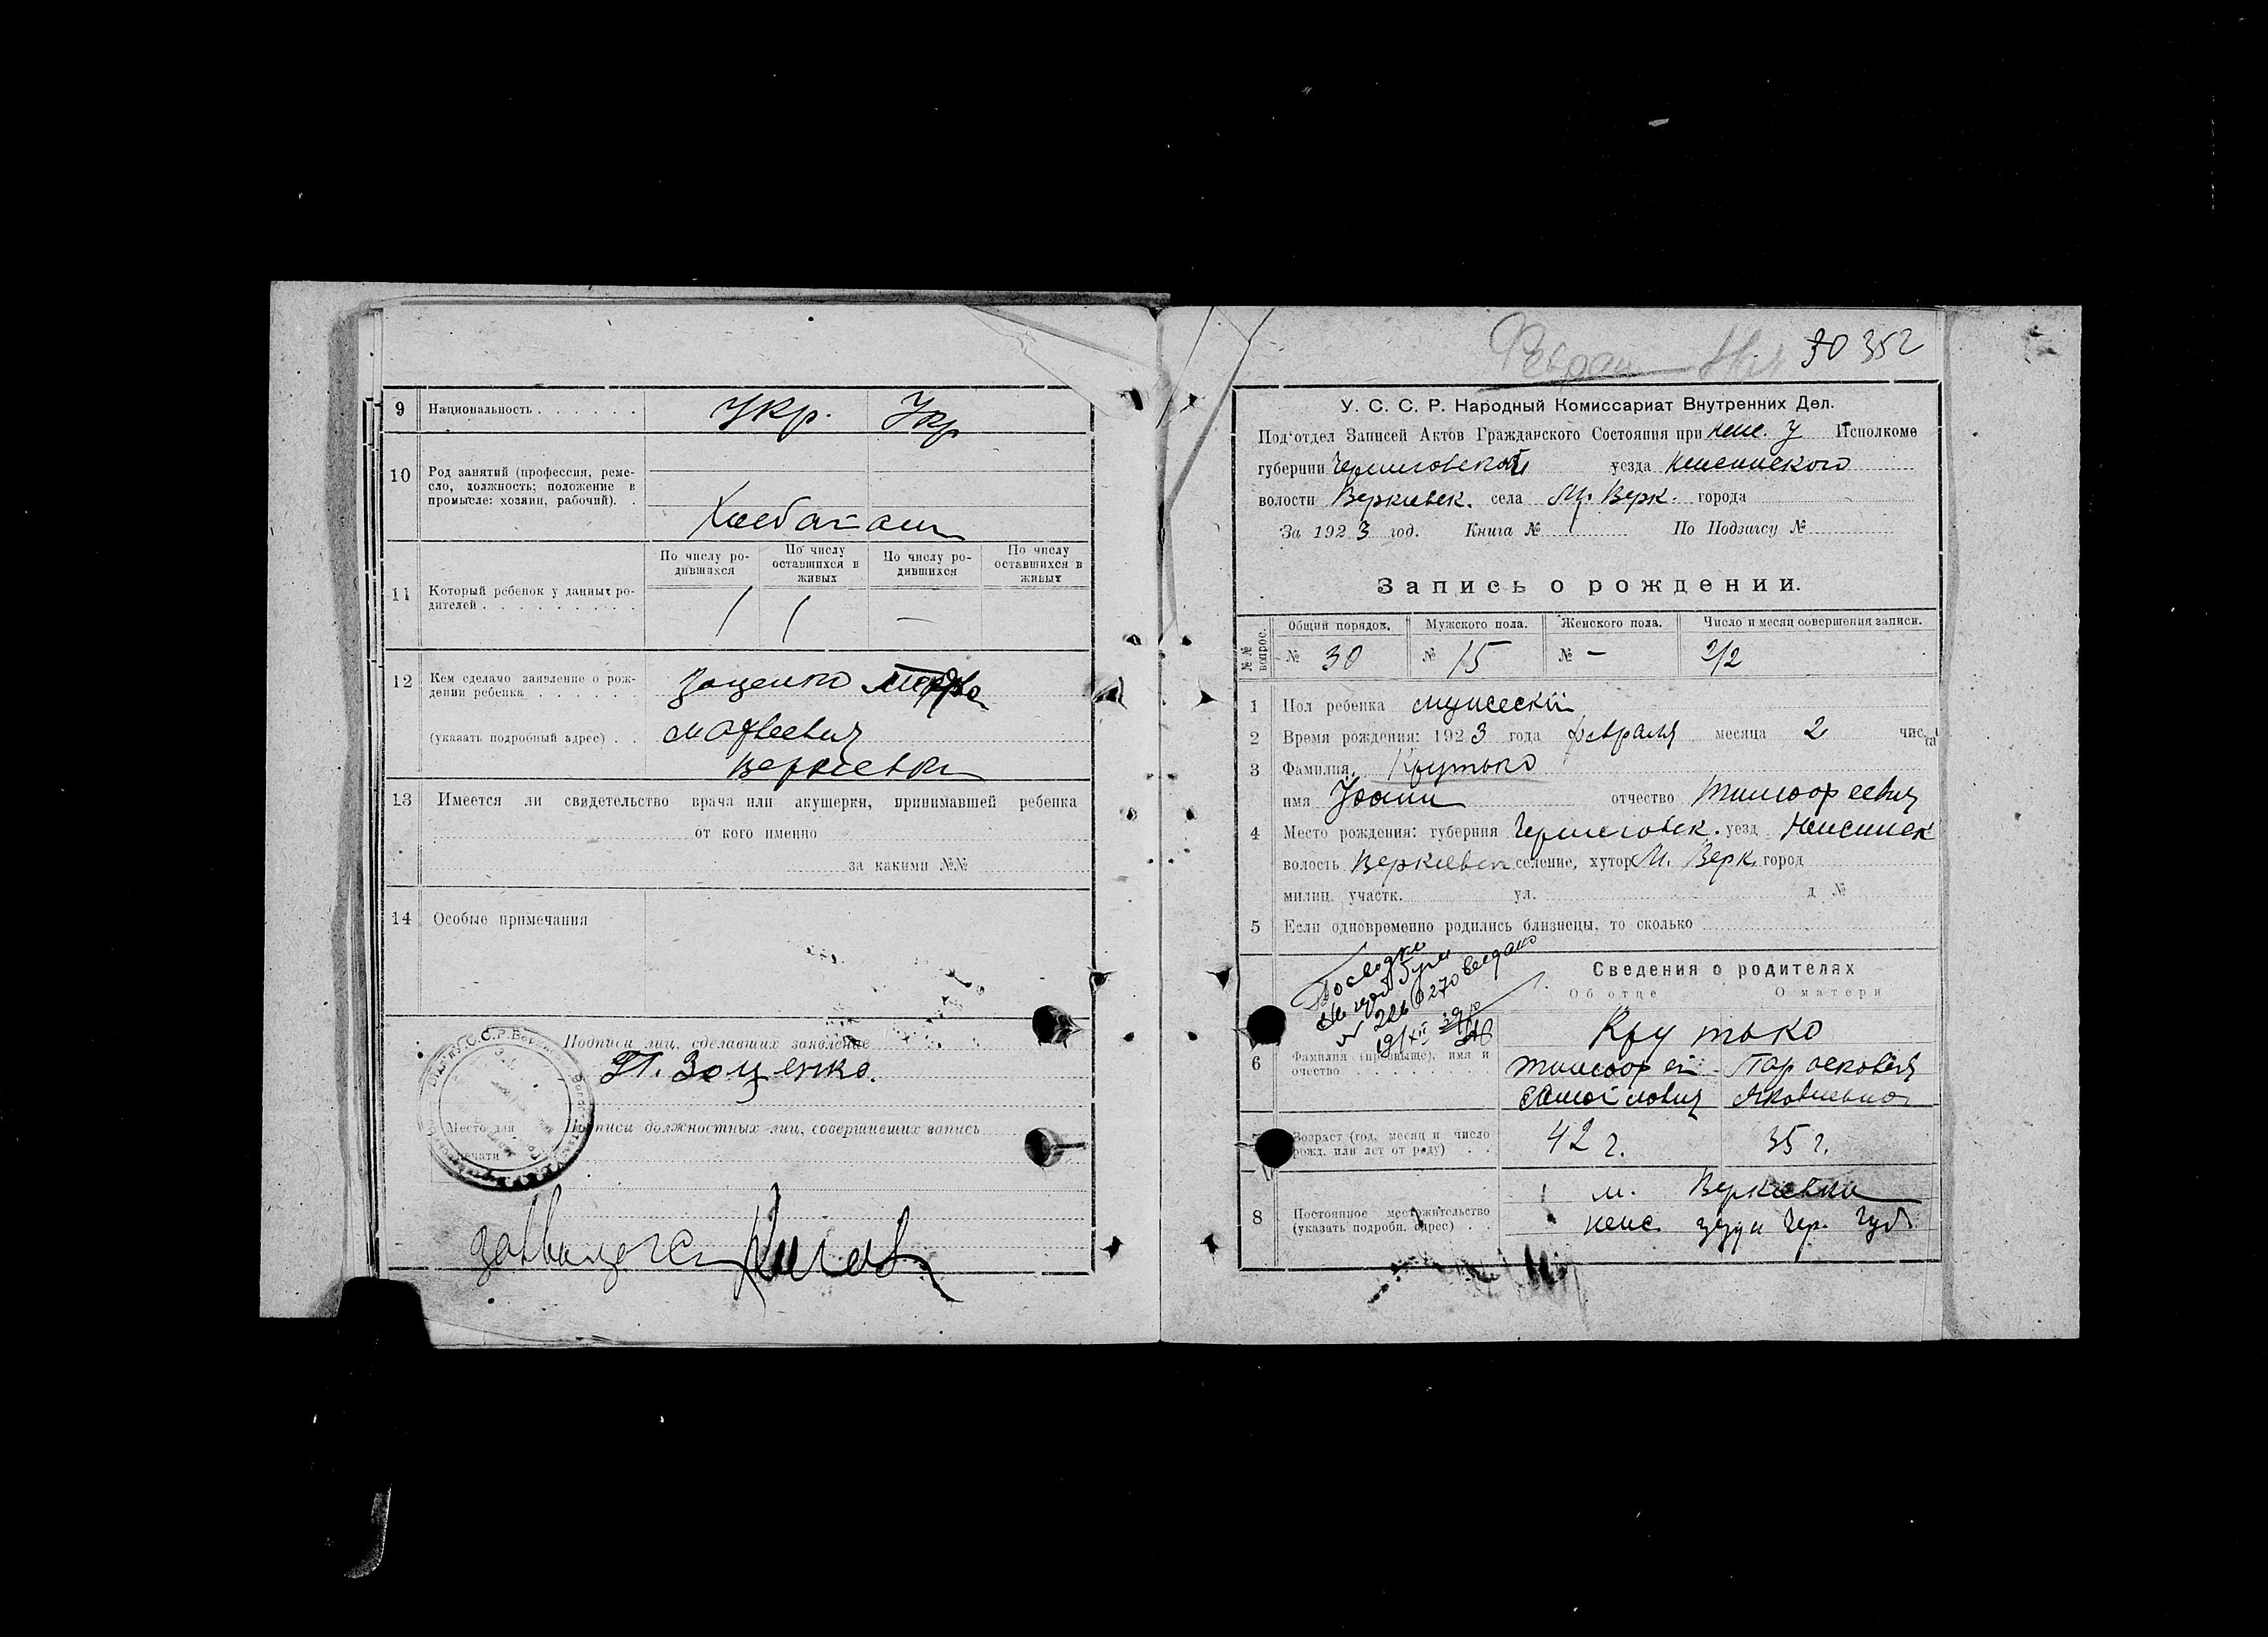 9 Национальность . . . . . . Укр. Укр
10 Род занятий (профессия, реме-
сло, должность; положение в
промысле: хозяин, рабочий). .
Хлебопаш
По числу ро-
дившихся
По числу
оставшихся в
живых
По числу ро-
дившихся
По числу
оставшихся в
живых
11 Который ребенок у данных ро-
дителей . . . . . . . . .
1 1 —
12 Кем сделано заявление о рож-
дении ребенка . . . . . .
Зоценко
(указать подробный адрес) . .
Матвеевич
Веркиевка
13 Имеется ли свидетельство врача или акушерки, принимавшей ребенка
от кого именно
за какими №№
14 Особые примечания
Подписи лиц, сделавших заявление
П. Зоценко.
Место для
печати
Подписи должностных лиц, совершивших запись
30 352
У. С. С. Р. Народный Комиссариат Внутренних Дел.
Под'отдел Записей Актов Гражданского Состояния при Неж. У Исполкоме
губернии Черниговской уезда Нежинского
волости Веркиевк. села М. Верк. города
За 1923 год. Книга № 1 По Подзагсу №
Запись о рождении.
№№ вопрос.
Общий порядок. Мужского пола. Женского пола. Число и месяц совершения записи.
№ 30 № 15 № — 2/2
1 Пол ребенка мужеский
2 Время рождения: 1923 года февраля месяца 2 числа
3 Фамилия Крутько
имя Иоанн отчество Тимофеевич
4 Место рождения: губерния Черниговск. уезд Нежинск
волость Веркиевск селение, хутор М. Верк. город
милиц. участк. ул. д №
5 Если одновременно родились близнецы, то сколько
Сведения о родителях
Об отце О матери
6 Фамилия (прозвище), имя и
очество . . . . . . . . .
Крутько
Тимофей Парасковия
Самойлович Яковлевна
7 Возраст (год, месяц и число
рожд. или лет от роду) . .
42 г. 35 г.
8 Постоянное местожительство
(указать подробн. адрес) . .
м. Веркиевка
Неж. уезда Чер. Губ.